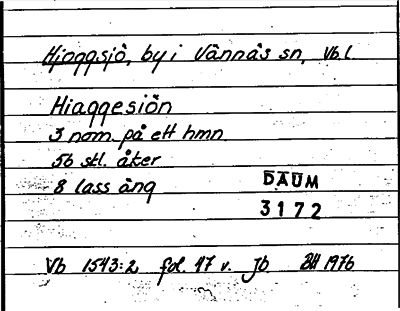 Hjoggsjö, by i Vännäs sn, Vb.l.
Hiaggesiön
3 nom. på ett hmn
56 stl. åker
8 lass äng
DAUM
3172
Vb 1543:2 fol. 47 v. Jb BH 1976